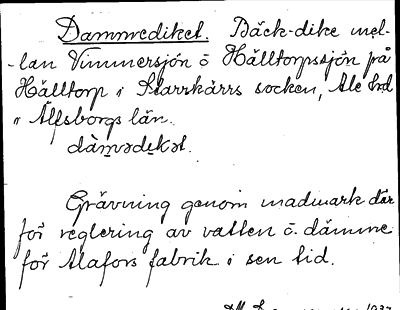 Dammediket. Bäck-dike mel-
-lan Vimmersjön o Hälltorpssjön på
Hälltorp i Starrkärrs socken, Ale hrd
i Älfsborgs län.
dàm̥ədek̥ət.
Grävning genom madmark där
för reglering av vatten o. dämme
för Alafors fabrik i sen tid.